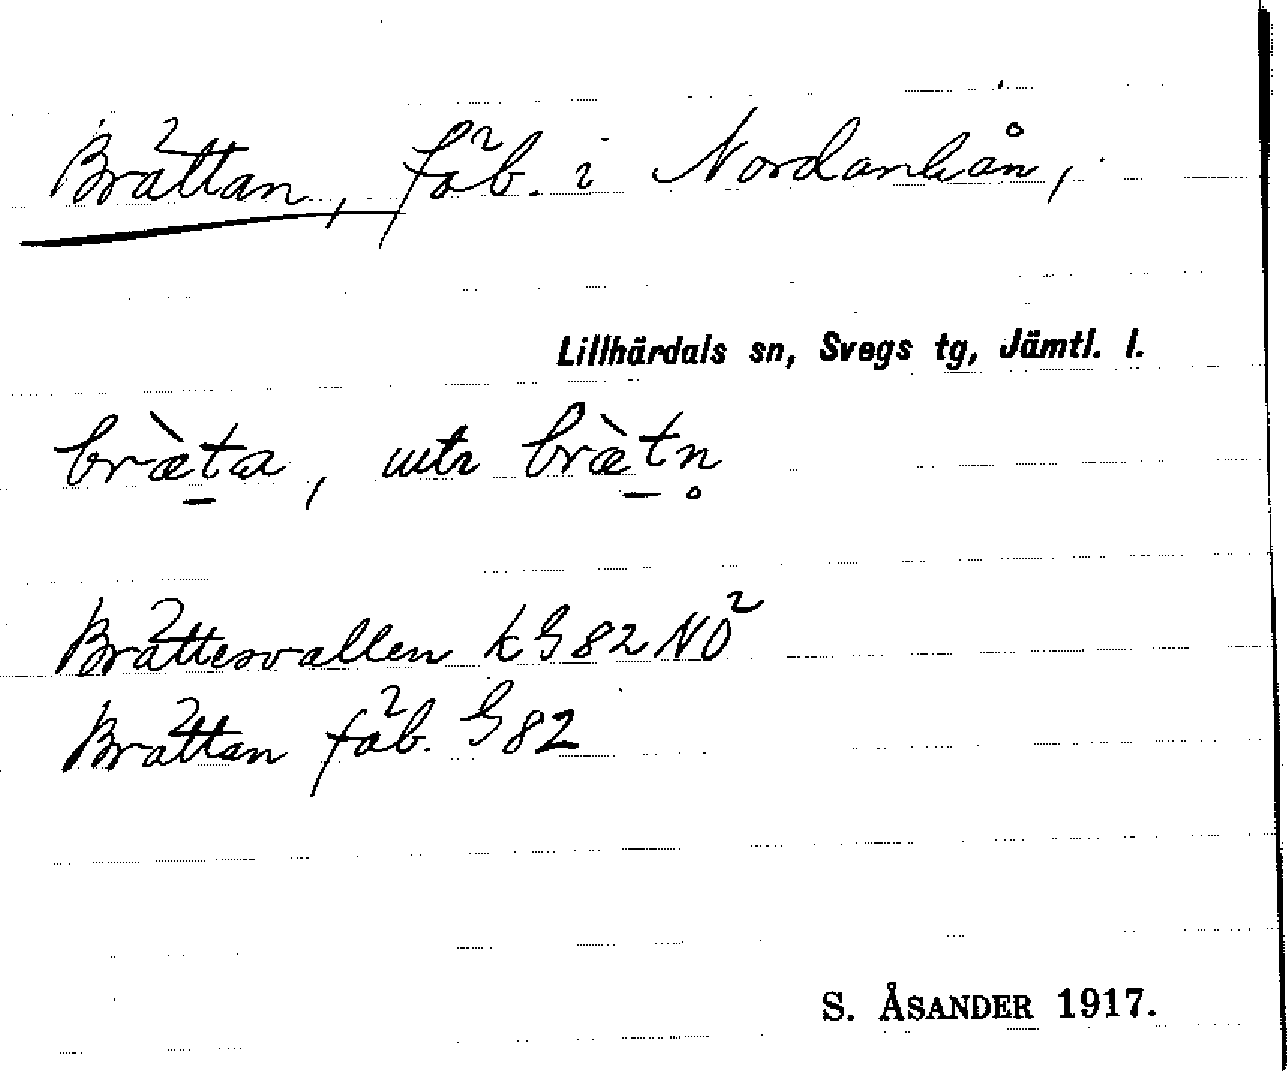 Brättan, fäb. i Nordanhån,
Lillhärdals sn, Svegs tg, Jämtl. l.
bræ̀ta, utr bræ̀tn̥
Brättesvallen k G82 NO²
Brättan fäb. G82
S. ÅSANDER 1917.